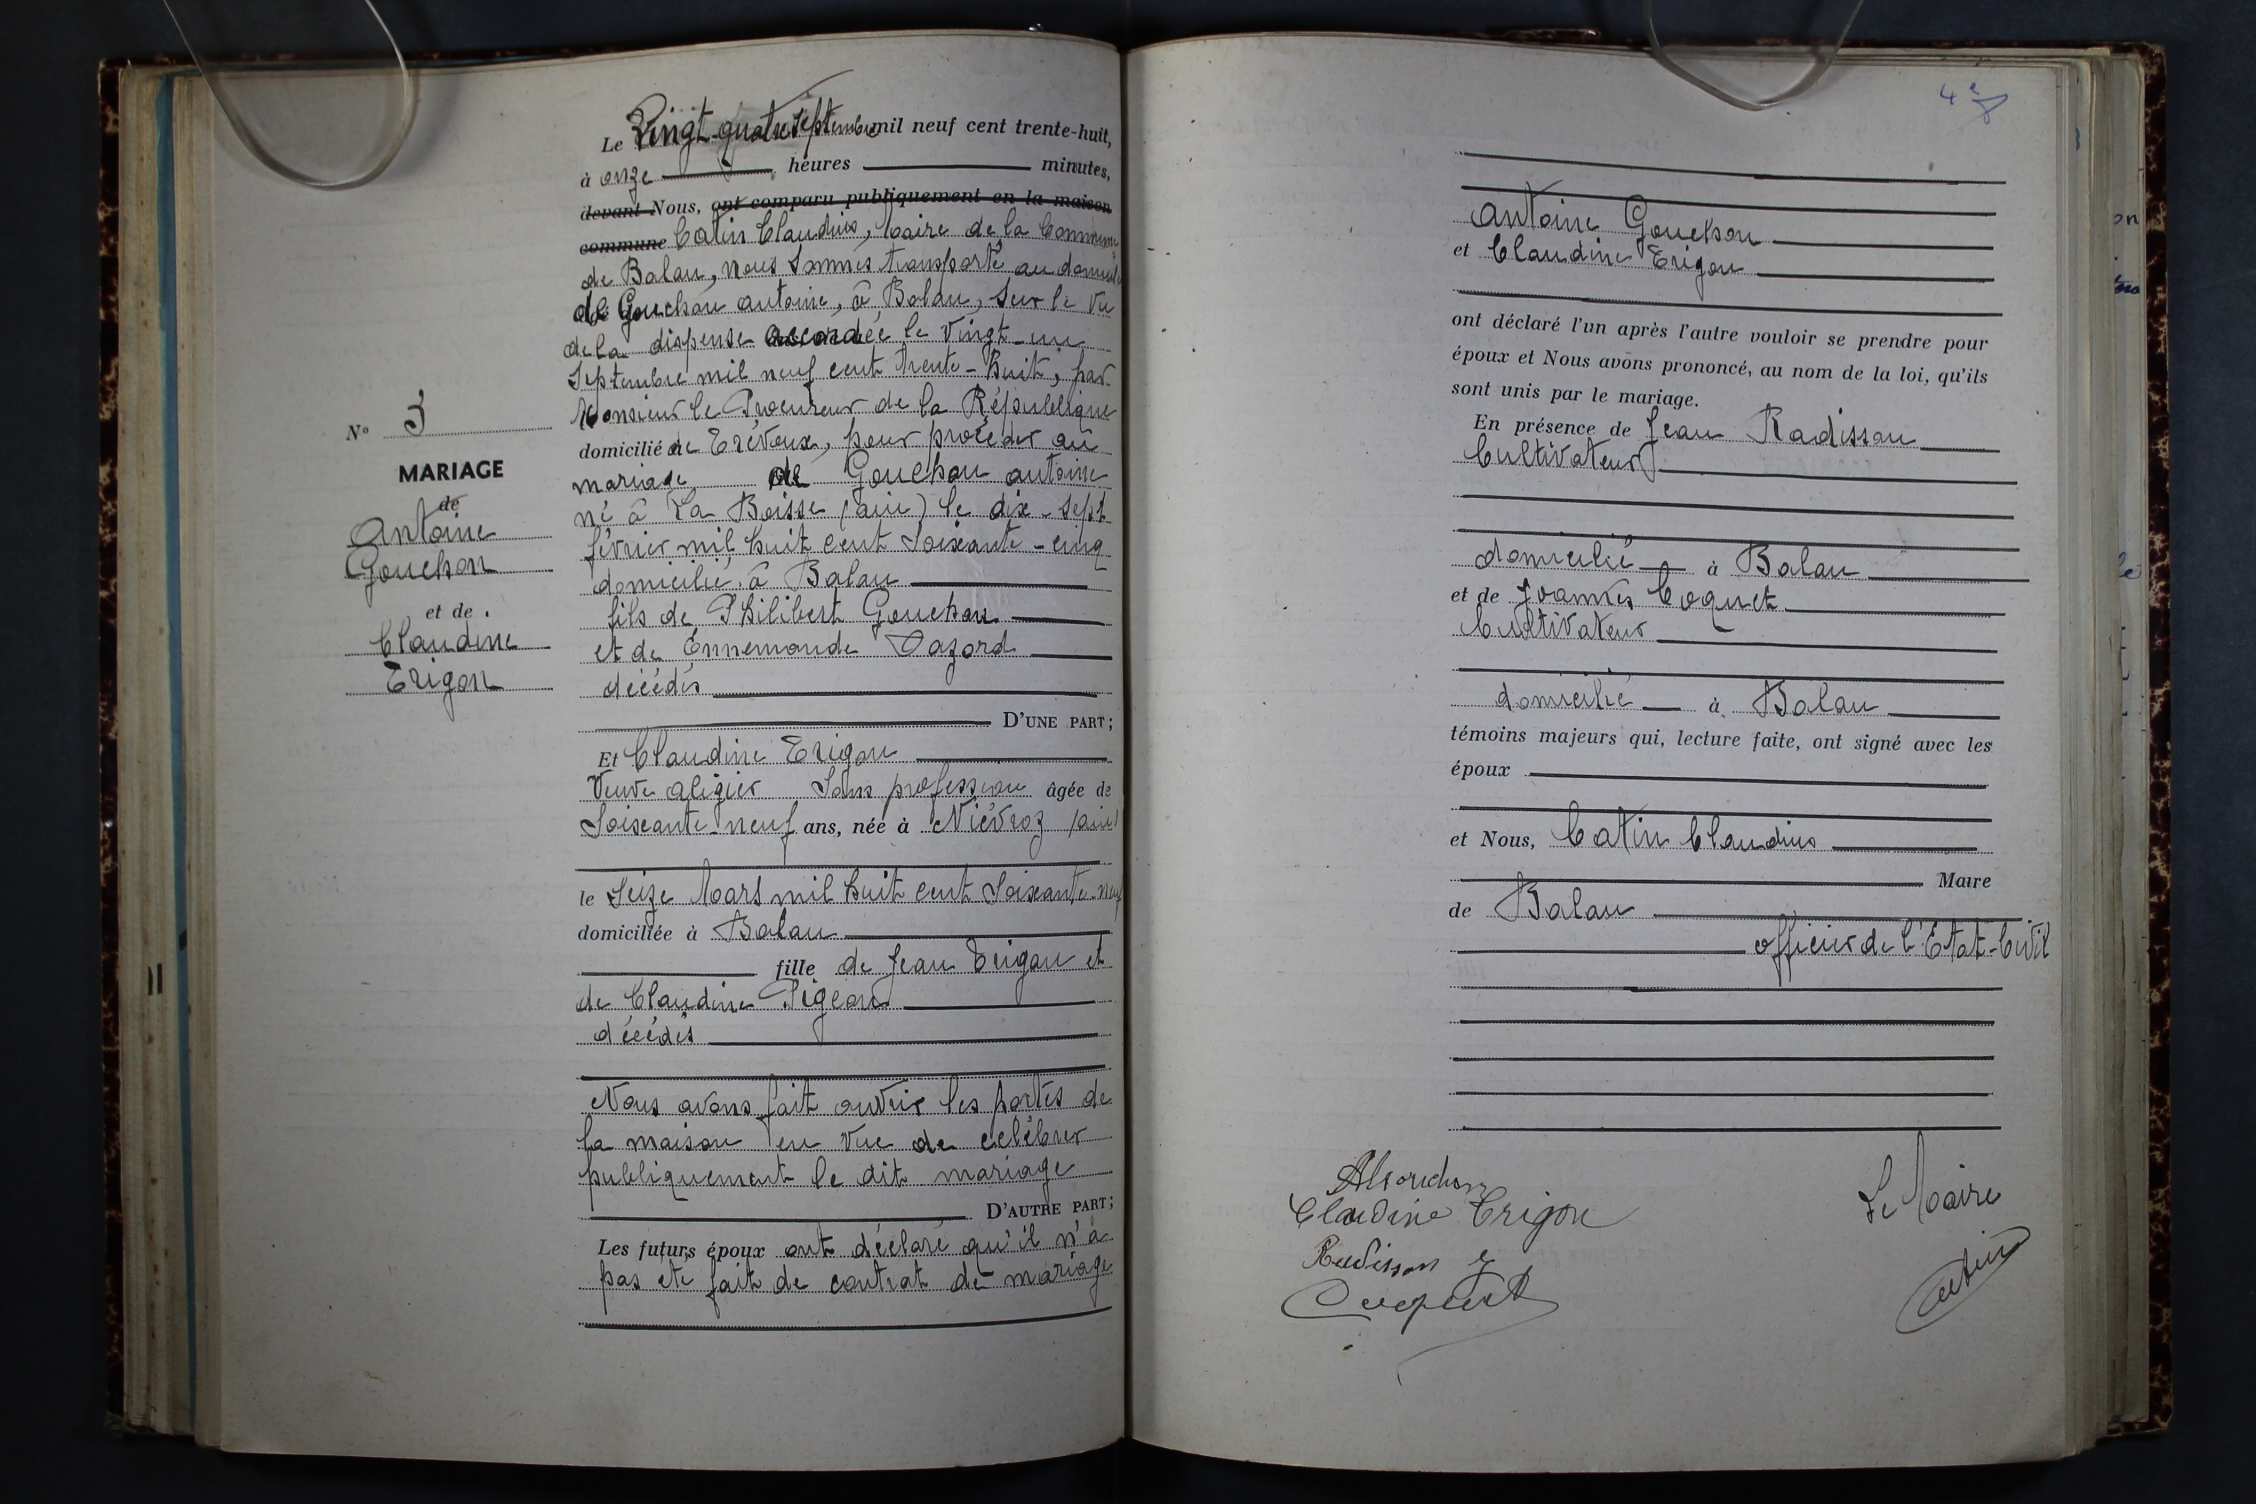 Le Vingt-quatre Septembre mil neuf cent trente-huit,
à onze heures minutes,
devant Nous, ont comparu publiquement en la maison
commune Catin Claudius, Maire de la Commune
de Balan, nous sommes transporté au domicile
de Gouchon antoine, à Balan, sur le vu
de la dispense accordée le vingt-un
Septembre mil neuf cent trente-huit, par
Monsieur le Procureur de la République
domicilié de Trévoux, pour procéder au
mariage de Gouchon antoine
né à La Boisse (ain) le dix-sept
février mil huit cent soixante-cinq
domicilié à Balan
fils de Philibert Gouchon
et de Ennemonde Dazord
décédés
D'UNE PART;
Et Claudine Trigon
Veuve aligier Sans profession âgée de
Soixante-neuf ans, née à Niévroz (ain)
le Seize Mars mil huit cent Soixante-neuf
domiciliée à Balan
fille de Jean Trigon et
de Claudine Pigeon
décédés
Nous avons fait ouvrir les portes de
la maison en vue de célébrer
publiquement le dit mariage
D'AUTRE PART;
Les futurs époux ont déclaré qu'il n'a
pas été fait de contrat de mariage
N° 3
MARIAGE
de
Antoine
Gouchon
et de
Claudine
Trigon
4e
Antoine Gouchon
et Claudine Trigon
ont déclaré l'un après l'autre vouloir se prendre pour
époux et Nous avons prononcé, au nom de la loi, qu'ils
sont unis par le mariage.
En présence de Jean Radisson
Cultivateur
domicilié à Balan
et de Joannès Coquet
Cultivateur
domicilié à Balan
témoins majeurs qui, lecture faite, ont signé avec les
époux
et Nous, Catin Claudius
Maire
de Balan
officier de l'Etat-Civil
A Gouchon
Claudine Trigon
Le Maire
Radisson J
Coquet
Catin